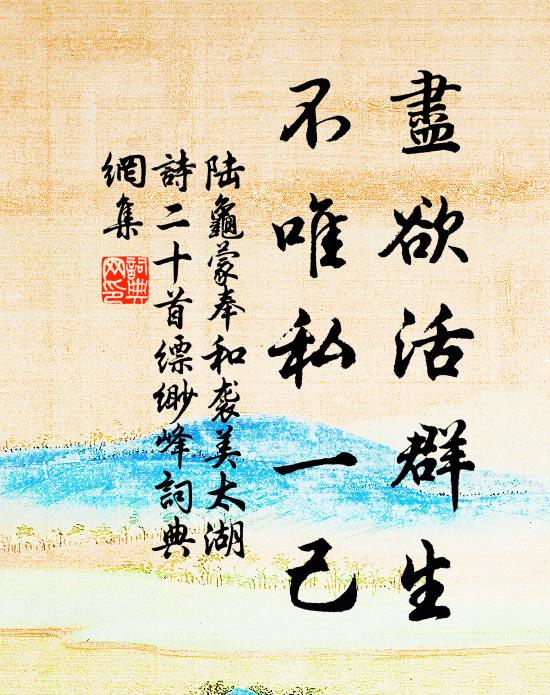 盡欲活群生
不唯私一己
陆龜蒙奉和袭美太湖
詩二十首縹緲峰詞典
網集
詞典
网印